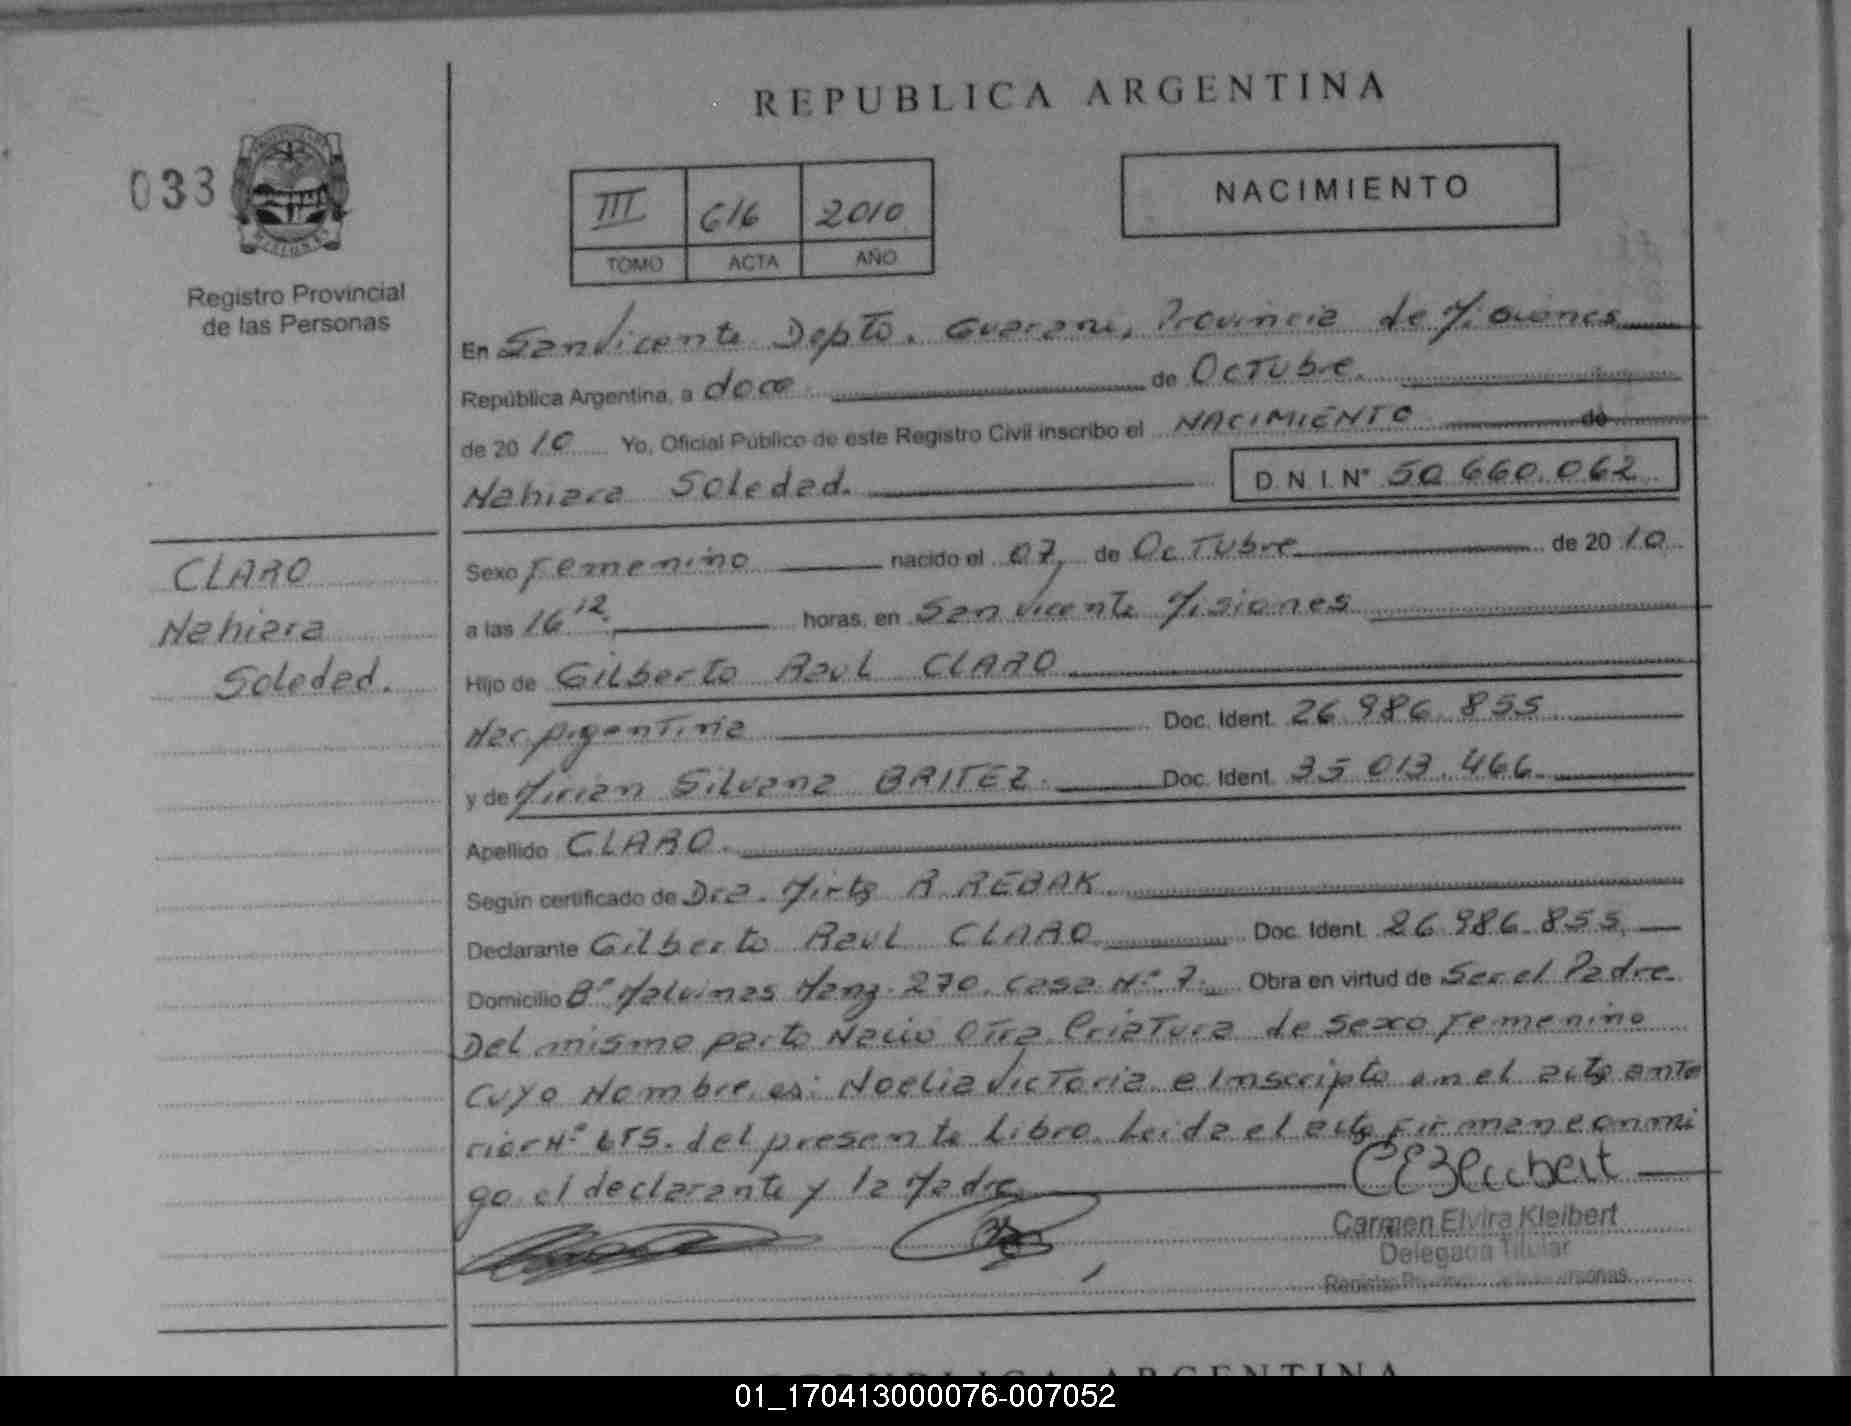 REPUBLICA ARGENTINA
033
NACIMIENTO
III 616 2010
TOMO ACTA AÑO
Registro Provincial
de las Personas
En San Vicente Depto. Guarani, Provincia de Misiones
República Argentina, a doce de Octubre
de 2010 Yo, Oficial Público de este Registro Civil inscribo el NACIMIENTO de
Nahiara Soledad. D.N.I. N° 50.660.062
CLARO
Nahiara
Soledad.
Sexo Femenino nacido el 07, de Octubre de 2010
a las 16 12 horas, en San Vicente Misiones
Hijo de Gilberto Raul CLARO
Nac. Argentina Doc. Ident. 26.986.855
y de Mirian Silvana BRITEZ. Doc. Ident. 35.013.466
Apellido CLARO.
Según certificado de Dra. Mirta R REBAK
Declarante Gilberto Raul CLARO Doc. Ident. 26.986.855
Domicilio B° Malvinas Manz. 270. Casa N° 7. Obra en virtud de Ser el Padre
Del mismo parto Nacio Otra Criatura de sexo Femenino
Cuyo Nombre es: Noelia Victoria e Inscripto en el acta ante
rior N° 615. del presente Libro. Leida el acta Firman conmi
go el declarante y la Madre
Carmen Elvira Kleibert
Delegada Titular
REPUBLICA ARGENTINA
01_170413000076-007052